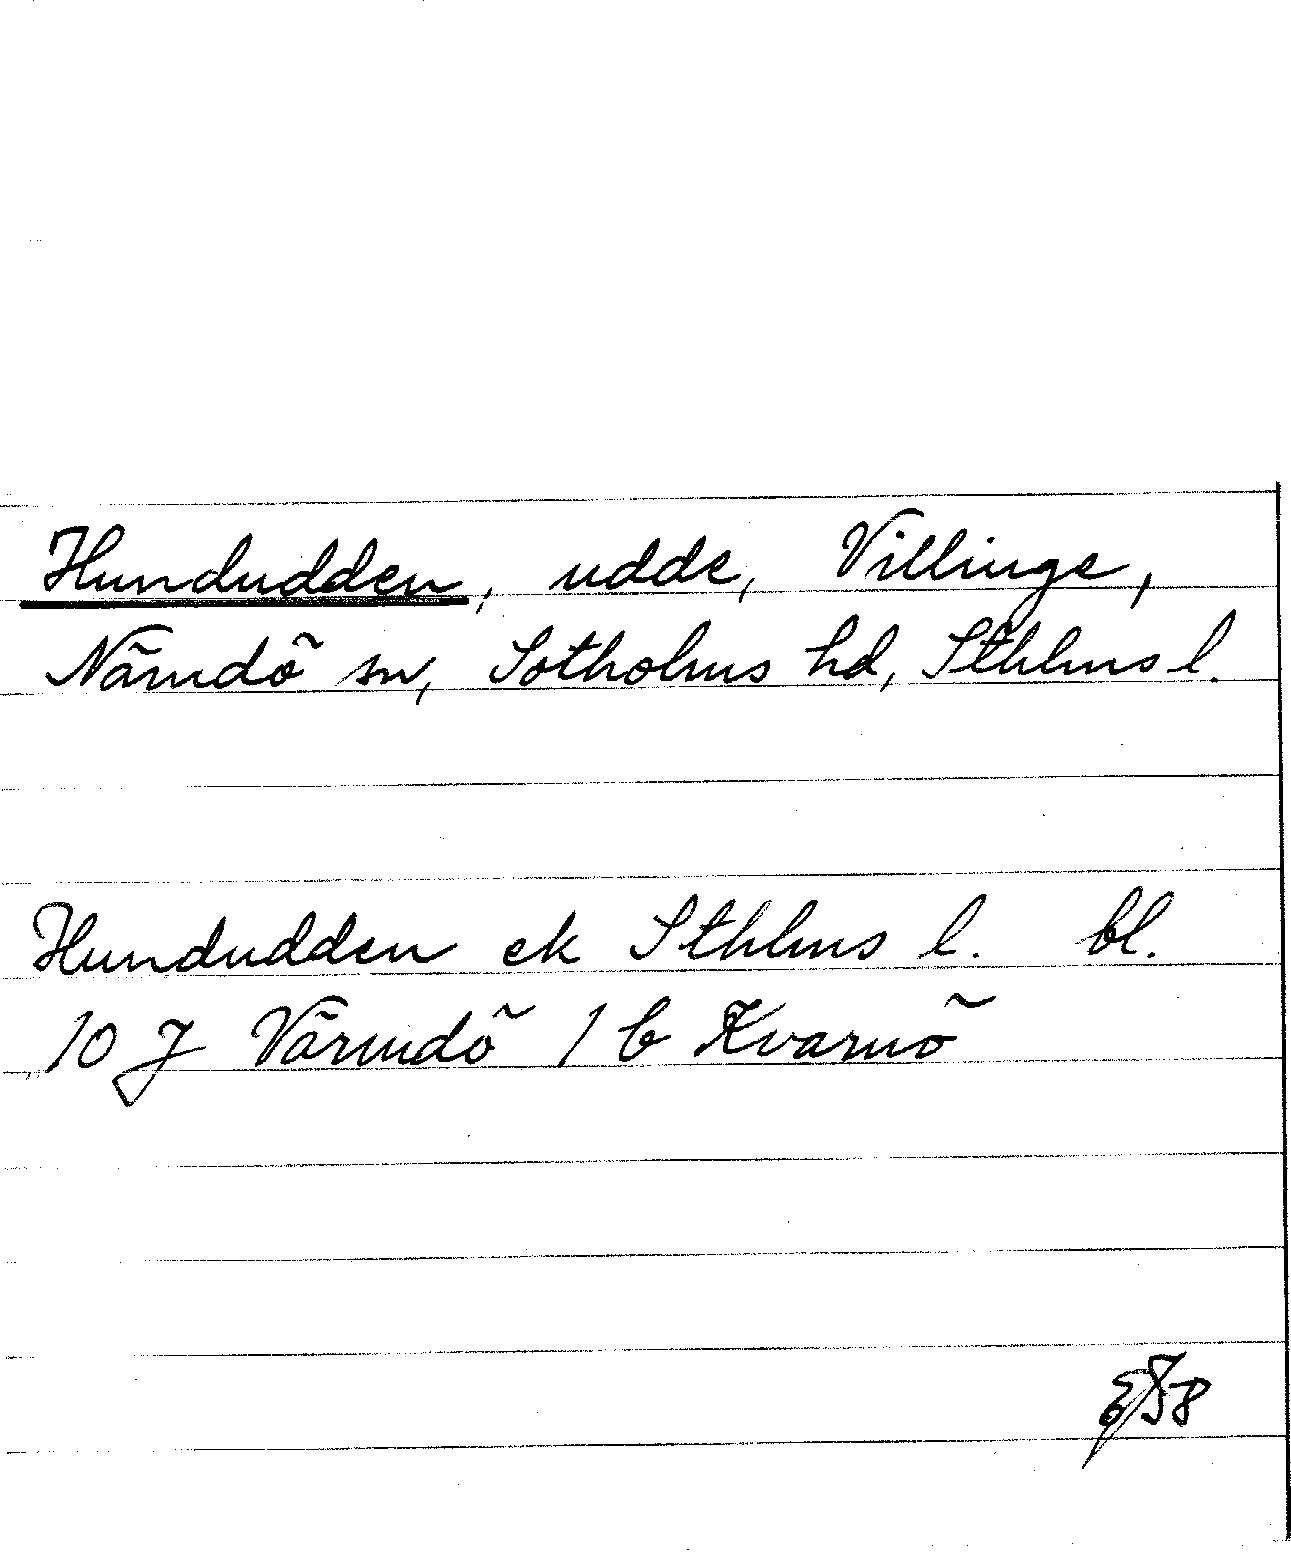 Hundudden, udde, Villinge,
Nämdö sn, Sotholms hd, Sthlms l.
Hundudden ek Sthlms l. bl.
10 J Värmdö 1 b Kvarnö